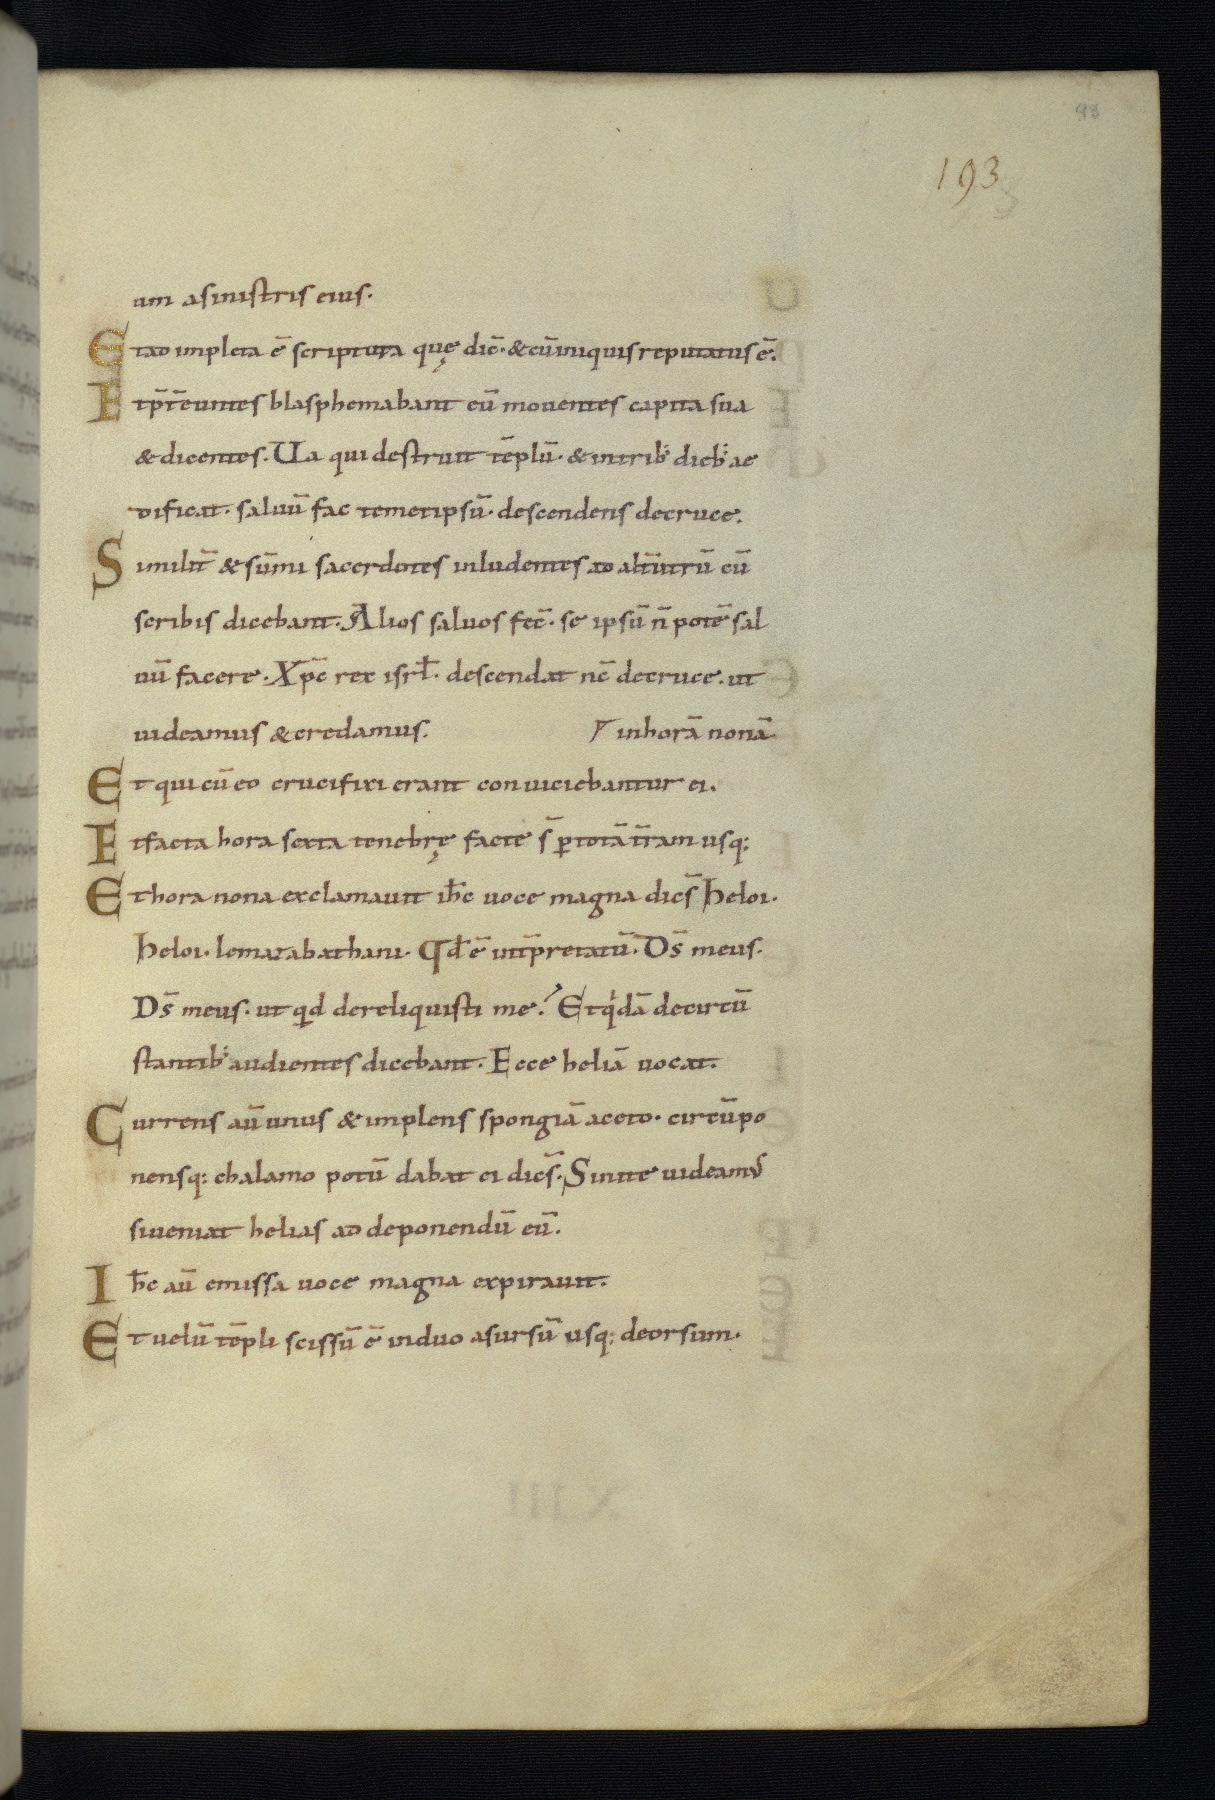 98
193
um asinistris eius.
Et adimpleta ē scriptura quę dic̄. & cū iniquis reputatus ē.
Et p̄t̄euntes blasphemabant eū mouentes capita sua
& dicentes. Ua qui destruit tēplū. & intrib; dieb; ae
dificat. saluū fac temetipsū. descendens decruce.
Similit̄ & sūmi sacerdotes inludentes ad alt̄iutrū cū
scribis dicebant. Alios saluos fec̄. se ipsū n̄ potē sal
uū facere. Xp̄c rex isrl̄. descendat nc̄ decruce. ut
uideamus & credamus. inhorā nonā
Et qui cū eo crucifixi erant conuiciebantur ei.
Et facta hora sexta tenebrę facte s̄ p̱ totā t̄ram usq;
Et hora nona exclamauit ih̄c uoce magna dicēs heloi.
heloi. lemazabathani. Qd̄ ē int̄pretatū. D̄s meus.
D̄s meus. ut qid dereliquisti me? Et qidā decircū
stantib; audientes dicebant. Ecce heliā uocat.
Currens aū unus & implens spongiā aceto. circūpo
nensq; chalamo potū dabat ei dicēs. Sinite uideamus
si ueniat helias ad deponendū eū.
Ih̄c aū emissa uoce magna expirauit.
Et uelū tēpli scissū ē induo asursū usq; deorsum.